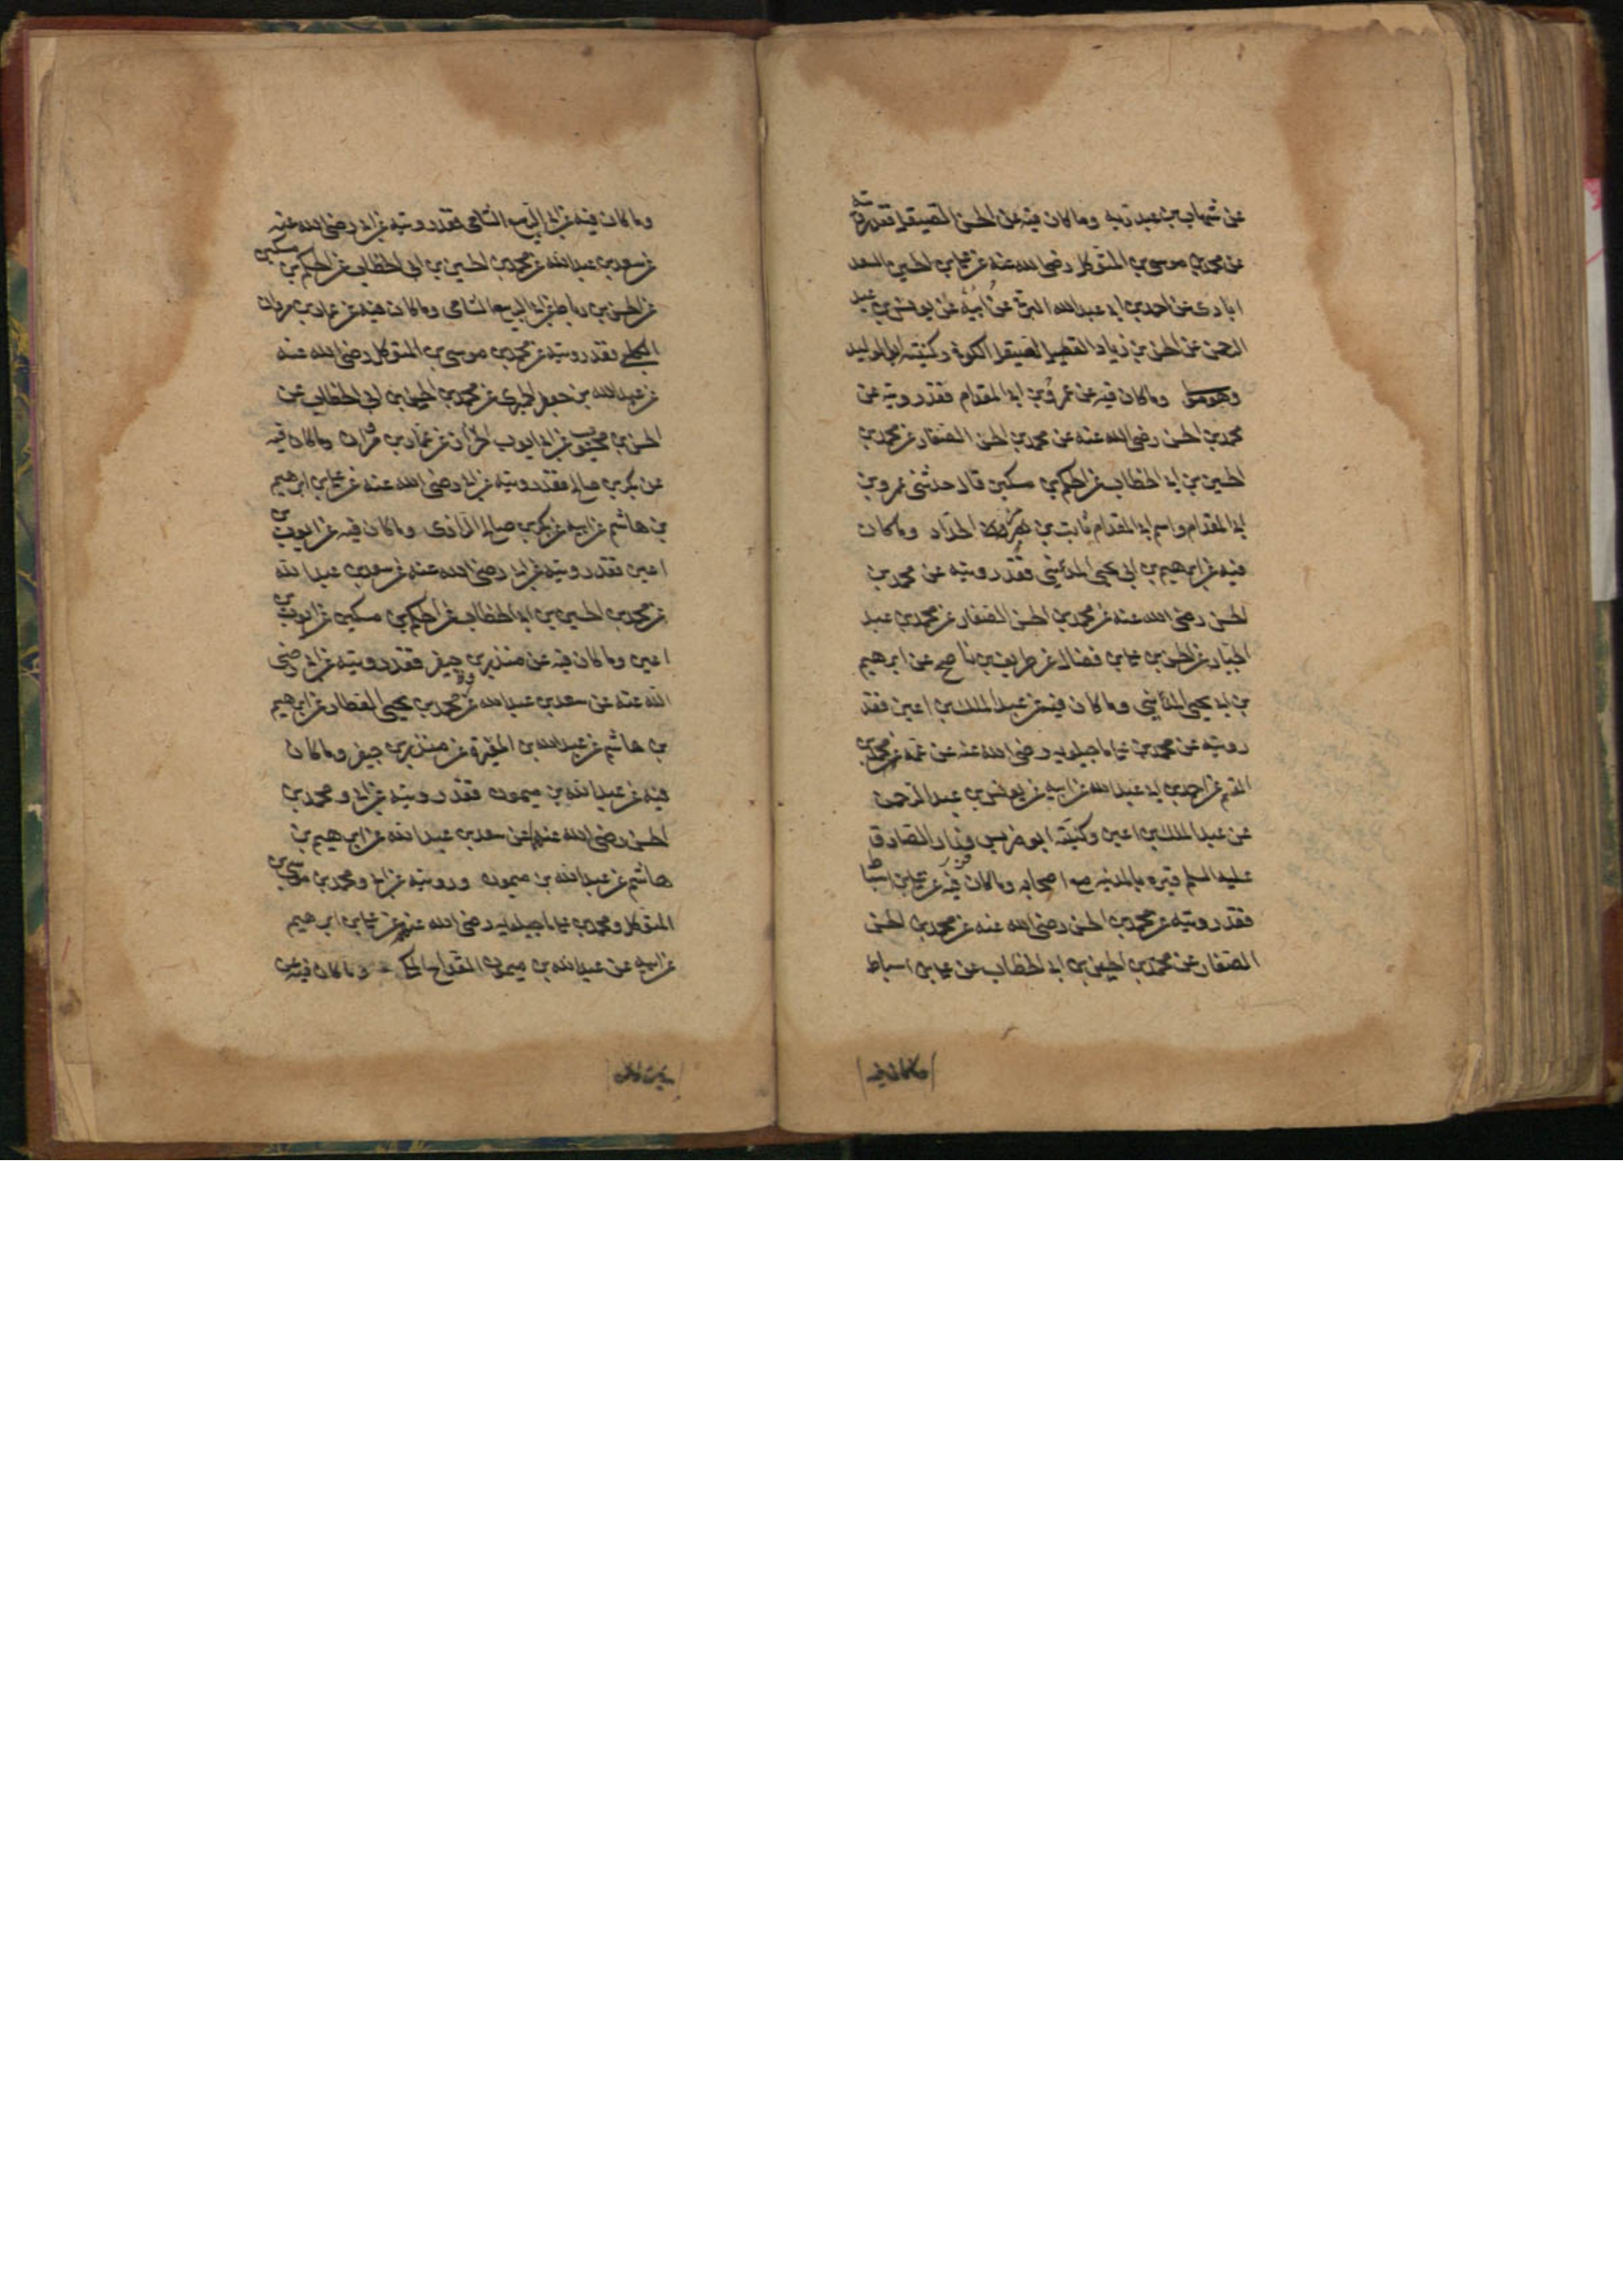 عن شهاب بن عبد ربه وما كان فيه عن الحسن الصيقل فقد رويته
عن محمد بن موسى بن المتوكل رضى الله عنه عن علي بن الحسين السعد
ابادى عن احمد بن ابي عبد الله البرقي عن ابيه عن يونس بن عبد
الرحمن عن الحسن بن زياد الصيقل الكوفي وكنيته ابو الوليد
وهو مولى وما كان فيه عن عمرو بن ابي المقدام فقد رويته عن
محمد بن الحسن رضى الله عنه عن محمد بن الحسن الصفار عن محمد بن
الحسين بن ابي الخطاب عن الحكم بن مسكين قال حدثني عمرو بن
ابي المقدام واسم ابي المقدام ثابت بن هرمز الحداد وما كان
فيه عن ابرهيم بن ابي يحيى المدائني فقد رويته عن محمد بن
الحسن رضى الله عنه عن محمد بن الحسن الصفار عن محمد بن عبد
الجبار عن الحسن بن علي بن فضال عن ظريف بن ناصح عن ابرهيم
بن ابي يحيى المدائني وما كان فيه عن عبد الملك بن اعين فقد
رويته عن محمد بن علي ماجيلويه رضى الله عنه عن عمه محمد بن
القسم عن احمد بن ابي عبد الله عن ابيه عن يونس بن عبد الرحمن
عن عبد الملك بن اعين وكنيته ابو ضريس وزار الصادق
عليه السلم قبره بالمدينه مع اصحابه وما كان فيه عن علي بن اسباط
فقد رويته عن محمد بن الحسن رضى الله عنه عن محمد بن الحسن
الصفار عن محمد بن الحسين بن ابي الخطاب عن علي بن اسباط
وما كان فيه
وما كان فيه عن ابي الربيع الشامى فقد رويته عن ابي رضى الله عنه
عن سعد بن عبد الله عن محمد بن الحسين بن ابي الخطاب عن الحكم بن مسكين
عن الحسن بن رباط عن ابي الربيع الشامى وما كان فيه عن عمار بن مروان
الكلبي فقد رويته عن محمد بن موسى بن المتوكل رضى الله عنه
عن عبد الله بن جعفر الحميرى عن محمد بن الحسين بن ابي الخطاب عن
الحسن بن محبوب عن ابي ايوب الخزاز عن عمار بن مروان وما كان فيه
عن بكر بن صالح فقد رويته عن ابي رضى الله عنه عن علي بن ابرهيم
بن هاشم عن ابيه عن بكر بن صالح الرازى وما كان فيه عن ايوب بن
اعين فقد رويته عن ابي رضى الله عنه عن سعد بن عبد الله
عن محمد بن الحسين بن ابي الخطاب عن الحكم بن مسكين عن ايوب بن
اعين وما كان فيه عن منذر بن جيفر فقد رويته عن ابي رضى
الله عنه عن سعد بن عبد الله عن محمد بن يحيى العطار عن ابرهيم
بن هاشم عن عبد الله بن المغيرة عن منذر بن جيفر وما كان
فيه عن عبد الله بن ميمون فقد رويته عن ابي ومحمد بن
الحسن رضى الله عنهما عن سعد بن عبد الله عن ابرهيم بن
هاشم عن عبد الله بن ميمون ورويته عن ابي ومحمد بن موسى بن
المتوكل ومحمد بن علي ماجيلويه رضى الله عنهم عن علي بن ابرهيم
عن ابيه عن عبد الله بن ميمون القداح المكي وما كان فيه عن